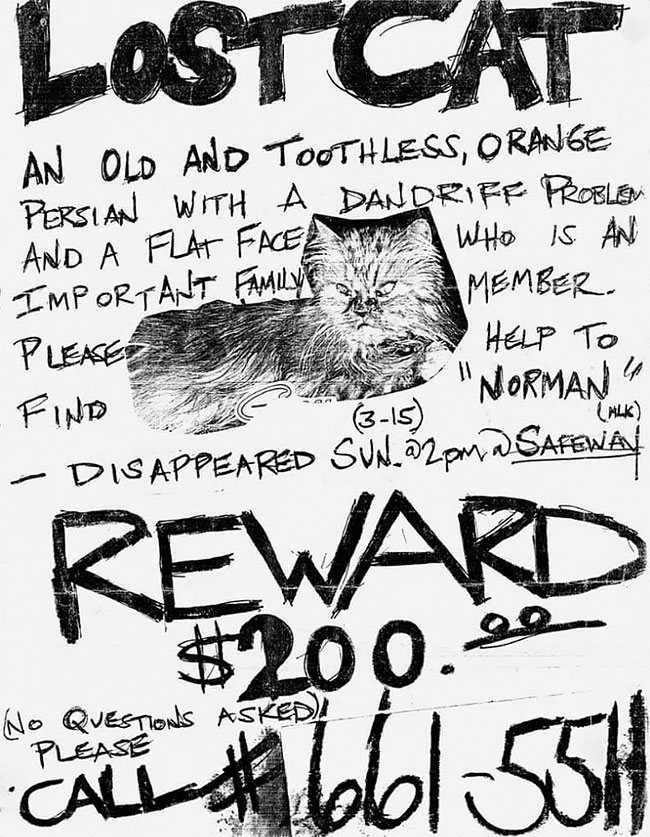 LOST CAT
AN OLD AND TOOTHLESS, ORANGE
PERSIAN WITH A DANDRIFF PROBLEM
AND A FLAT FACE WHO IS AN
IMPORTANT FAMILY MEMBER.
PLEASE HELP TO
FIND "NORMAN"
(3-15) (MLK)
- DISAPPEARED SUN. @2pm @ SAFEWAY
REWARD
$200.00
(NO QUESTIONS ASKED)
PLEASE
CALL # 661-5511